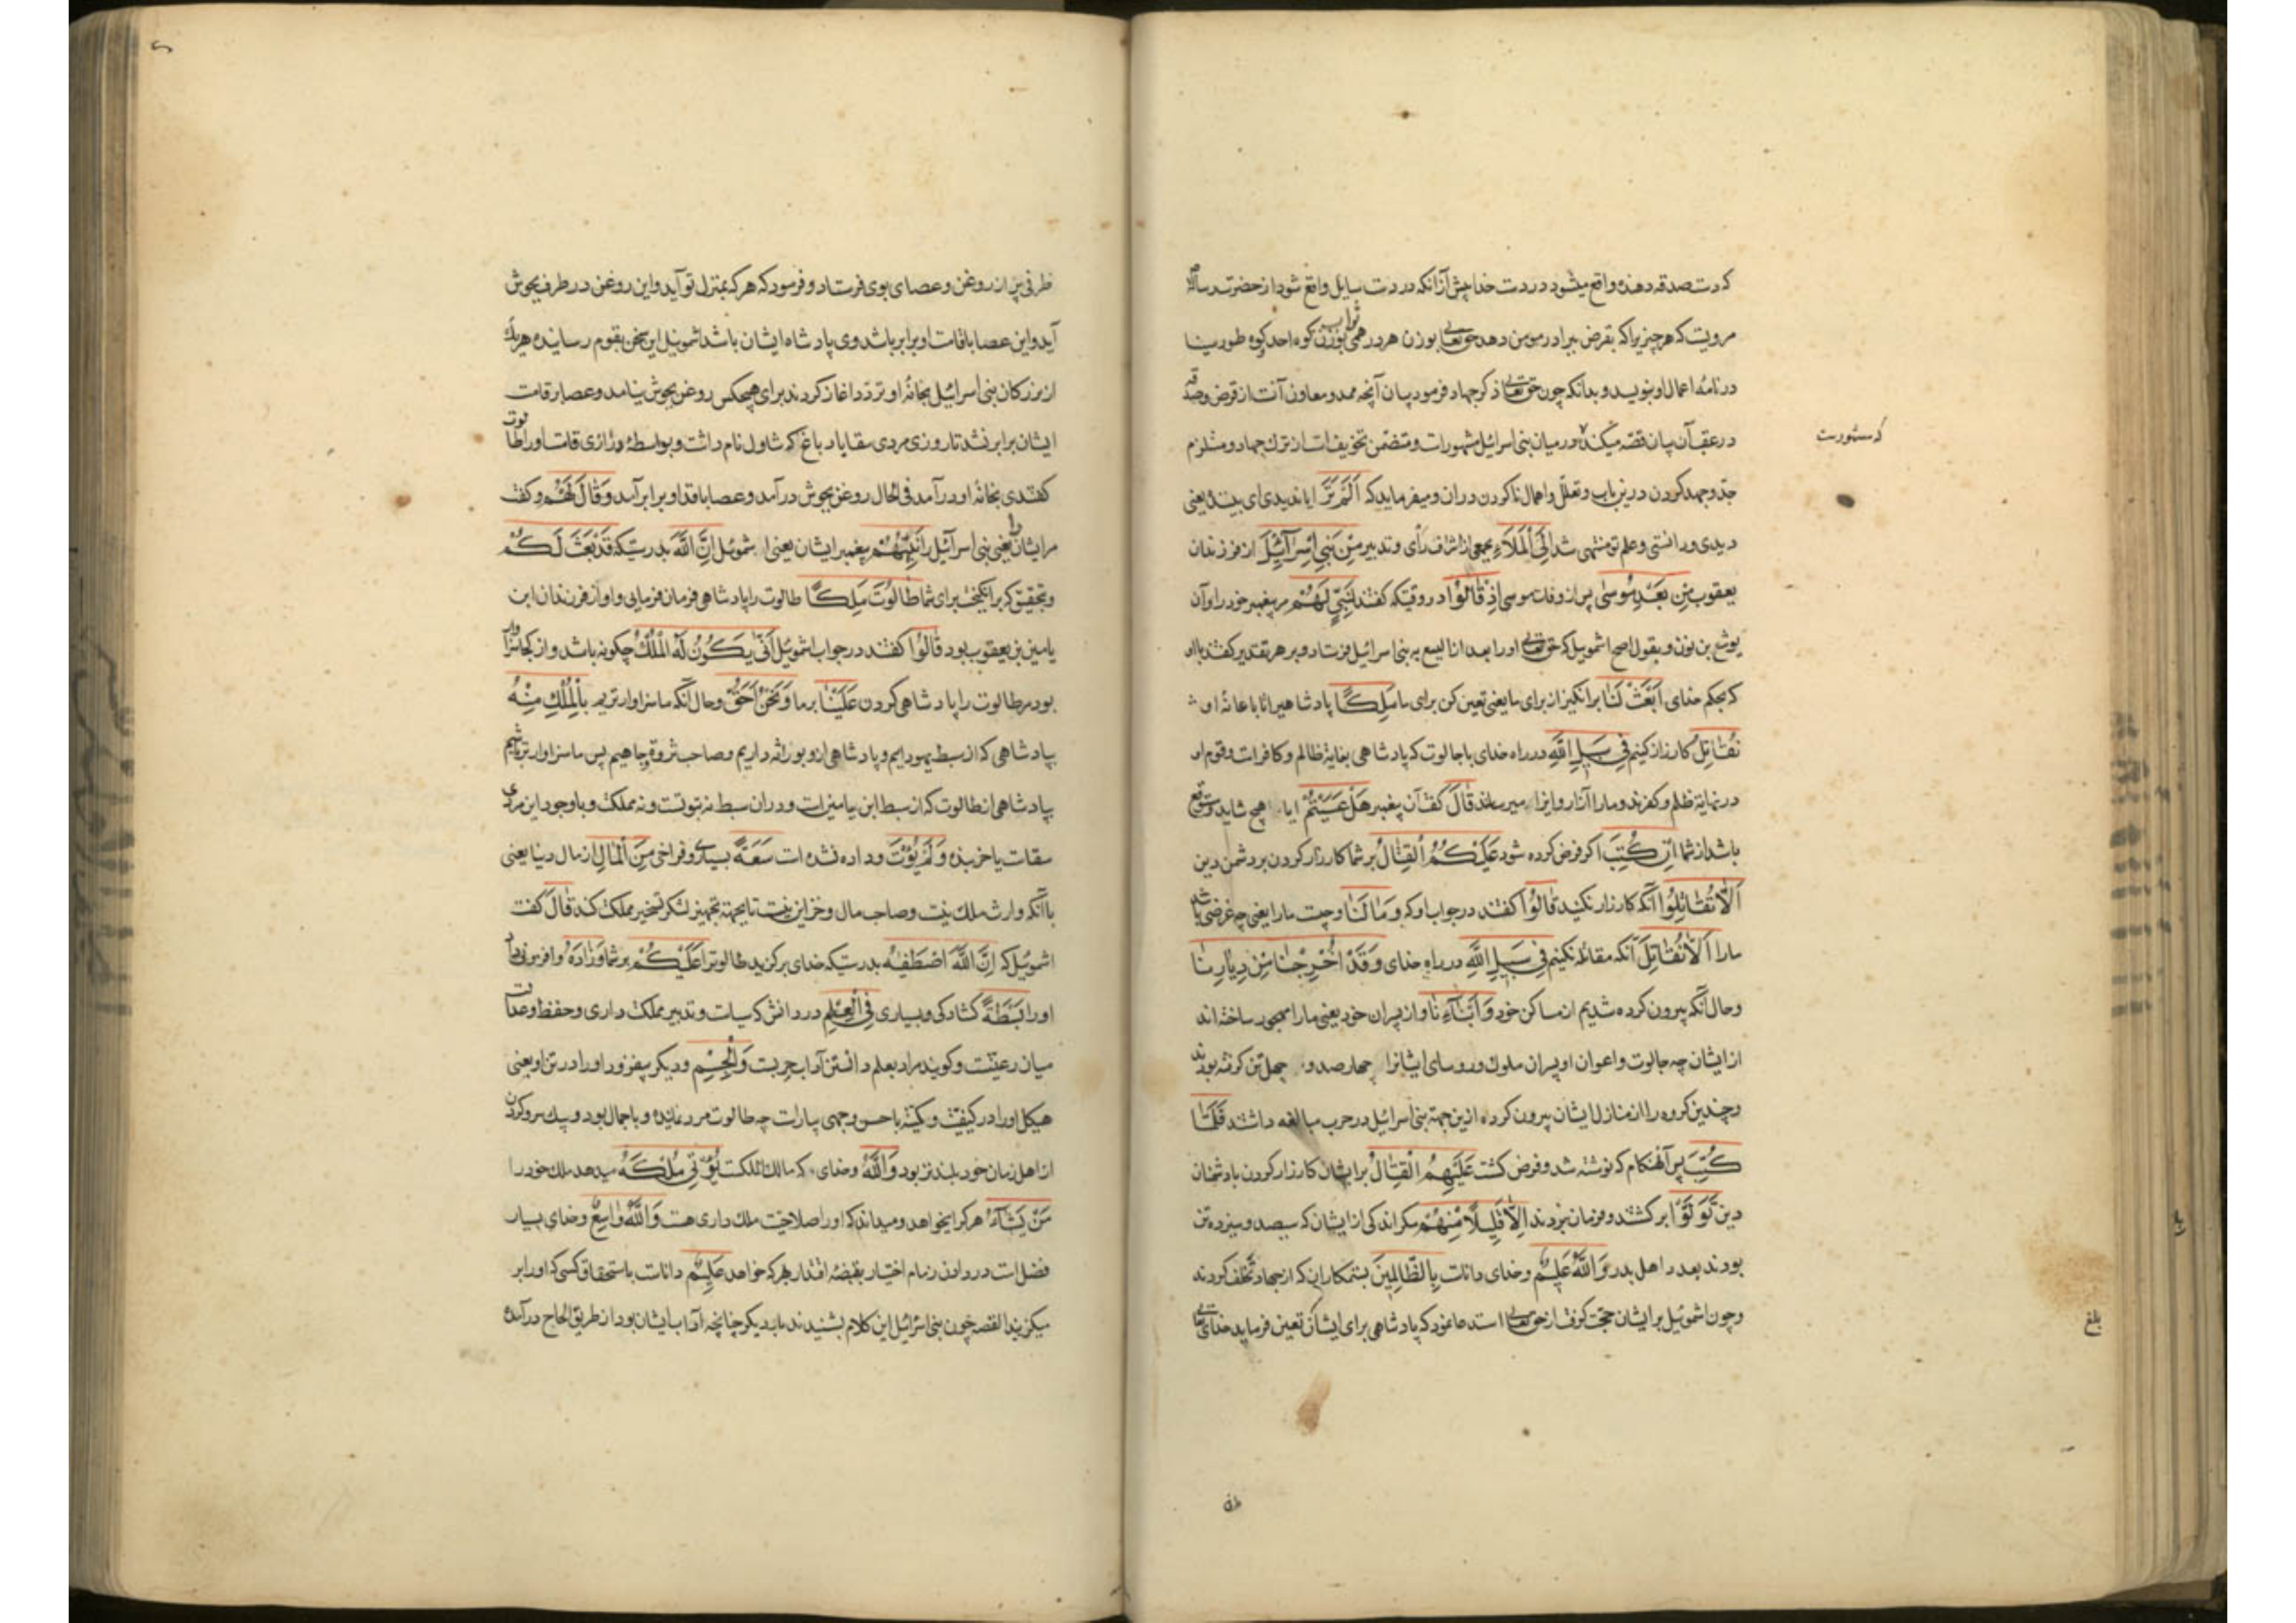 که دست صدقه دهنده واقع میشود در دست خدا پیش از آنکه در دست سایل واقع شود از حضرت رسالة
مرویست که هر چیزیرا که بقرض ببرادر مومن دهد حق تعالی بوزن هر درهمی ثواب بوزن کوه احد کوه طور سینا
در نامهٔ اعمال او بنویسد و بدانکه چون حق تعالی ذکر جهاد فرمود و بیان آنچه ممد و معاون آنست از قرض و صدقه
در عقب آن بیان قصه میکند در میان بنی اسرائیل مشهورست و متضمن تخویفات از ترک جهاد و مستلزم
که مشهورست
جد و جهد کردن درین باب و تعلل و اهمال ناکردن دران و میفرماید که اَلَمْ تَرَ ایا ندیدی ای بیننده یعنی
دیدی و دانستی و علم تو منتهی شد اِلَی الْمَلَاءِ بجمعی از اشراف رأی و تدبیر مِنْ بَنِی اِسْرَآئِیلَ از فرزندان
یعقوب مِنْ بَعْدِ مُوسٰی پس از وفات موسی اِذْ قَالُوْا در وقتیکه گفتند لِنَبِیٍّ لَهُمْ مر پیغمبر خود را و آن
یوشع بن نون و بقول اصح اشمویل که حق تعالی او را بعد از الیسع به بنی اسرائیل فرستاد و بر هر تقدیر گفتند با او
که بحکم خدای ابْعَثْ لَنَا برانگیز از برای ما یعنی تعین کن برای ما مَلِکًا پادشاهی را تا باعانهٔ او
نُقَاتِلْ کارزار کنیم فِی سَبِیلِ اللّٰهِ در راه خدای با جالوت که پادشاهی بغایة ظالم و کافرست و قوم او
در نهایة ظلم و کفرند و ما را آزار و ایذا میرسانند قَالَ گفت آن پیغمبر هَلْ عَسَیْتُمْ ایا هیچ شاید و متوقع
باشد از شما اِنْ کُتِبَ اگر فرض کرده شود عَلَیْکُمُ الْقِتَالُ بر شما کارزار کردن بر دشمن دین
اَلَّا تُقَاتِلُوا آنکه کارزار نکنید قَالُوْا گفتند در جواب او که وَ مَا لَنَا و چیست ما را یعنی چه غرضی باشد
ما را اَلَّا نُقَاتِلَ آنکه مقاتله نکنیم فِی سَبِیلِ اللّٰهِ در راه خدای وَ قَدْ اُخْرِجْنَا مِنْ دِیَارِنَا
و حال آنکه بیرون کرده شدیم از مساکن خود وَ اَبْنَآءِنَا و از پسران خود یعنی ما را مهجور ساخته اند
از ایشان چه جالوت و اعوان او پسران ملوک و روسای ایشانرا چهارصد و چهل تن گرفته بودند
و چندین گروه را از منازل ایشان بیرون کرده ازین جهة بنی اسرائیل در حرب مبالغه داشتند فَلَمَّا
کُتِبَ پس آنهنگام که نوشته شد و فرض گشت عَلَیْهِمُ الْقِتَالُ بر ایشان کارزار کردن با دشمنان
دین تَوَلَّوْا برگشتند و فرمان نبردند اِلَّا قَلِیلًا مِنْهُمْ مگر اندکی از ایشان که سیصد و سیزده تن
بودند بعدد اهل بدر وَ اللّٰهُ عَلِیمٌ و خدای داناست بِالظَّالِمِینَ بستمکاران که از جهاد تخلف کردند
و چون اشموئیل بر ایشان حجت گرفت از حق تعالی استدعا نمود که پادشاهی برای ایشان تعین فرماید خدای تعالی
بلغ
ظرفی پر از روغن و عصای بوی فرستاد و فرمود که هر که بمنزل تو آید و این روغن در ظرف بجوش
آید و این عصا با قامت او برابر باشد وی پادشاه ایشان باشد اشموئیل این سخن بقوم رسانیده هر یک
از بزرگان بنی اسرائیل بخانهٔ او تردد اغاز کردند برای هیچکس روغن بجوش نیامد و عصا بر قامت
ایشان برابر نشد تا روزی مردی سقا یا دباغ که شاول نام داشت و بواسطهٔ درازی قامت او را طالوت
گفتندی بخانهٔ او درآمد فی الحال روغن بجوش درآمد و عصا با قد او برابر آمد وَ قَالَ لَهُمْ و گفت
مر ایشان را یعنی بنی اسرآئیل را نَبِیُّهُمْ پیغمبر ایشان یعنی اشموئیل اِنَّ اللّٰهَ بدرستیکه قَدْ بَعَثَ لَکُمْ
و بتحقیق که برانگیخت برای شما طَالُوْتَ مَلِکًا طالوت را پادشاهی فرمان فرمایی و او از فرزندان ابن
یامین بن یعقوب بود قَالُوْا گفتند در جواب اشموئیل اَنّٰی یَکُوْنُ لَهُ الْمُلْکُ چگونه باشد و از کجا سزاوار
بود مر طالوت را پادشاهی کردن عَلَیْنَا بر ما وَ نَحْنُ اَحَقُّ و حال آنکه ما سزاوارتریم بِالْمُلْکِ مِنْهُ
بپادشاهی که از سبط یهودایم و پادشاهی ازو بوراثه داریم و صاحب ثروة و جاهیم پس ما سزاوارتر باشیم
بپادشاهی از طالوت که از سبط ابن یامین است و دران سبط نه نبوتست و نه مملکت و با وجود این مردی
سقاست یا خربنده وَ لَمْ یُؤْتَ و داده نشده است سَعَةً بسیاری و فراخی مِنَ الْمَالِ از مال دنیا یعنی
با آنکه وارث ملک نیست و صاحب مال و خزاین نیست تا بجهة تجهیز لشکر تسخیر مملکت کند قَالَ گفت
اشموئیل که اِنَّ اللّٰهَ اصْطَفٰیهُ بدرستیکه خدای برگزید طالوترا عَلَیْکُمْ بر شما وَ زَادَهُ و افزونی داد
او را بَسْطَةً گشادگی و بسیاری فِی الْعِلْمِ در دانش که سیاست و تدبیر مملکت داری و حفظ و عدالت
میان رعیتست و گویند مراد بعلم دانستن آداب حربست وَ الْجِسْمِ و دیگر بیفزود او را در تن او یعنی
هیکل او را در کیفیت و کمیة باحسن وجهی بیاراست چه طالوت مردی نماینده و با جمال بود و بیک سر و گردن
از اهل زمان خود بلندتر بود وَ اللّٰهُ و خدای که مالک الملکست یُؤْتِی مُلْکَهُ میدهد ملک خود را
مَنْ یَشَآءُ هر کرا میخواهد و میداند که او را صلاحیت ملک داری هست وَ اللّٰهُ وَاسِعٌ و خدای بسیار
فضل است در دادن زمام اختیار بقبضهٔ اقتدار هر که خواهد عَلِیمٌ داناست باستحقاق کسی که او را بر
میگزیند القصه چون بنی اسرائیل این کلام بشنیدند بار دیگر چنانچه آداب ایشان بود از طریق الحاح درآمده